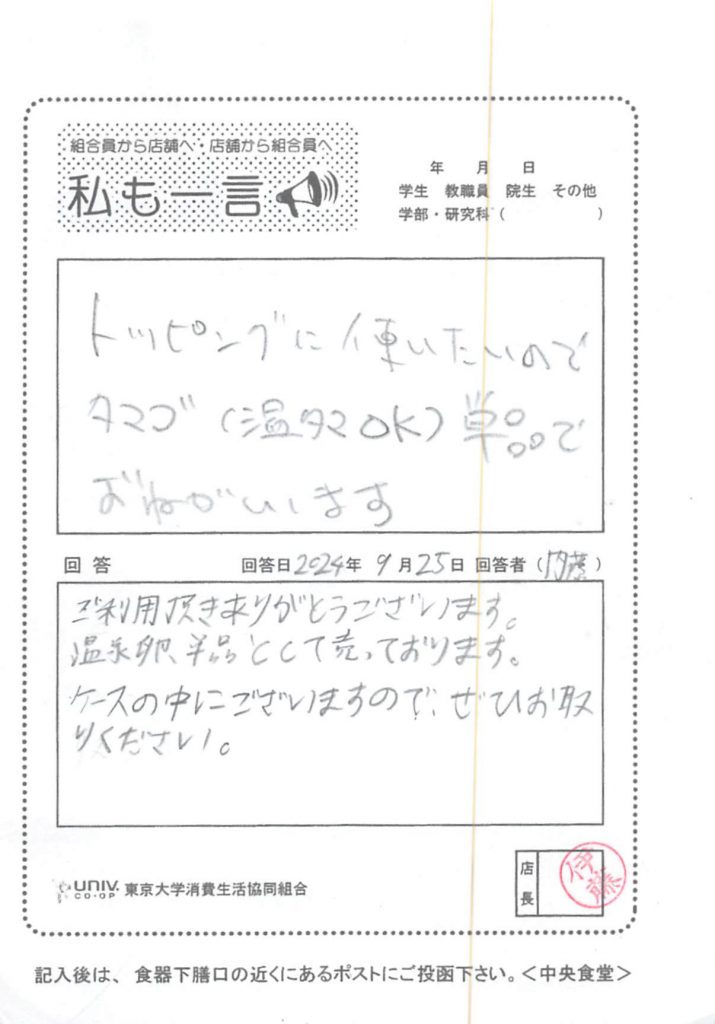 組合員から店舗へ・店舗から組合員へ
私も一言
年 月 日
学生 教職員 院生 その他
学部・研究科 ( )
トッピングに使いたいので
タマゴ (温タマOK) 単品で
おねがいします
回答 回答日2024年 9月25日 回答者 (内藤)
ご利用頂きありがとうございます。
温泉卵、単品として売っております。
ケースの中にございますので、ぜひお取
りください。
UNIV. CO-OP 東京大学消費生活協同組合
店長 伊藤
記入後は、食器下膳口の近くにあるポストにご投函下さい。<中央食堂>